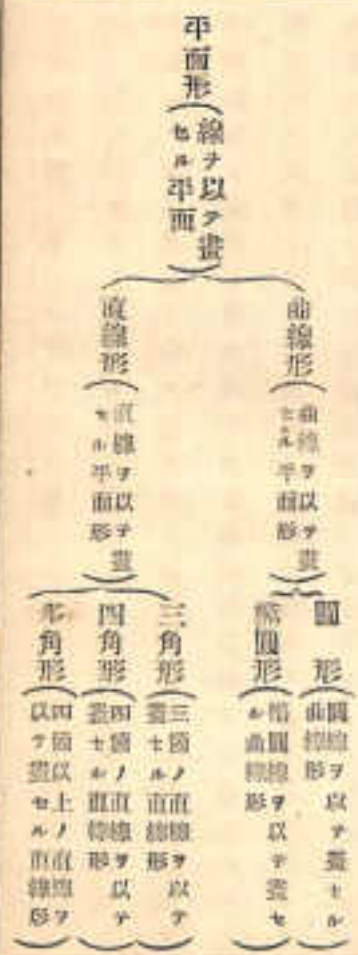 平面形(線ヲ以テ畫
セル平面)
曲線形(曲線ヲ以テ畫
セル平面形)
圓形(圓線ヲ以テ畫セル
曲線形)
楕圓形(楕圓線ヲ以テ畫セ
ル曲線形)
直線形(直線ヲ以テ畫
セル平面形)
三角形(三箇ノ直線ヲ以テ
畫セル直線形)
四角形(四箇ノ直線ヲ以テ
畫セル直線形)
多角形(四箇以上ノ直線ヲ
以テ畫セル直線形)